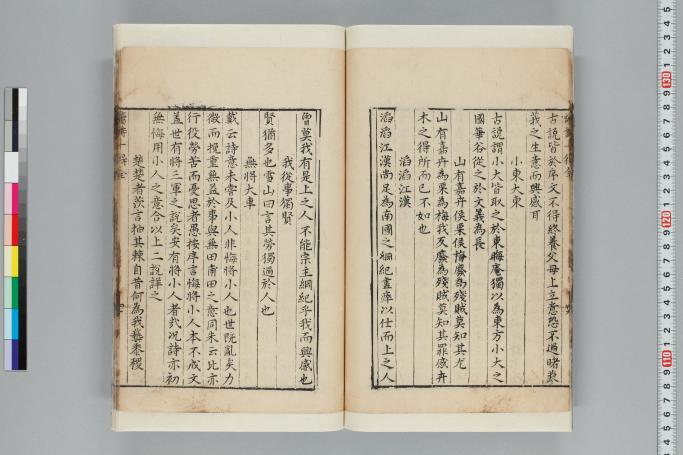 古説皆於序文不得終養父母上立意恐不過睹莪
莪之生意而興感耳
小東大東
古説謂小大皆取之於東晦庵獨以為東方小大之
國華谷從之於文義為長
山有嘉卉侯栗侯梅廢為殘賊莫知其尤
山有嘉卉為栗為梅我反廢為殘賊莫知其罪感卉
木之得所而已不如也
滔滔江漢
滔滔江漢尚足為南國之綱紀盡瘁以仕而上之人
曾莫我有是上之人不能宗主綱紀乎我而興感也
我從事獨賢
賢猶多也雪山曰言其勞獨過於人也
無將大車
戴云詩意未嘗及小人非悔將小人也世既亂矣力
微而挽重無益於事與無田甫田之意同朱云此亦
行役勞苦而憂思者愚按序言悔將小人本不成文
蓋世有將三軍之説矣安有將小人者哉况詩亦初
無悔用小人之意合以上二説詳之
楚楚者茨言抽其棘自昔何為我蓺黍稷